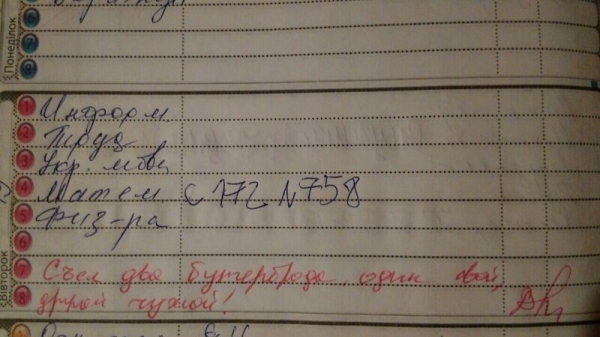 6
7
8
Понеділок
1 Информ
2 Труд
3 Укр. мова
4 Матем с 172 N758
5 Физ-ра
6
7 Съел два бутерброда, один свой,
8 другой чужой!
Вівторок